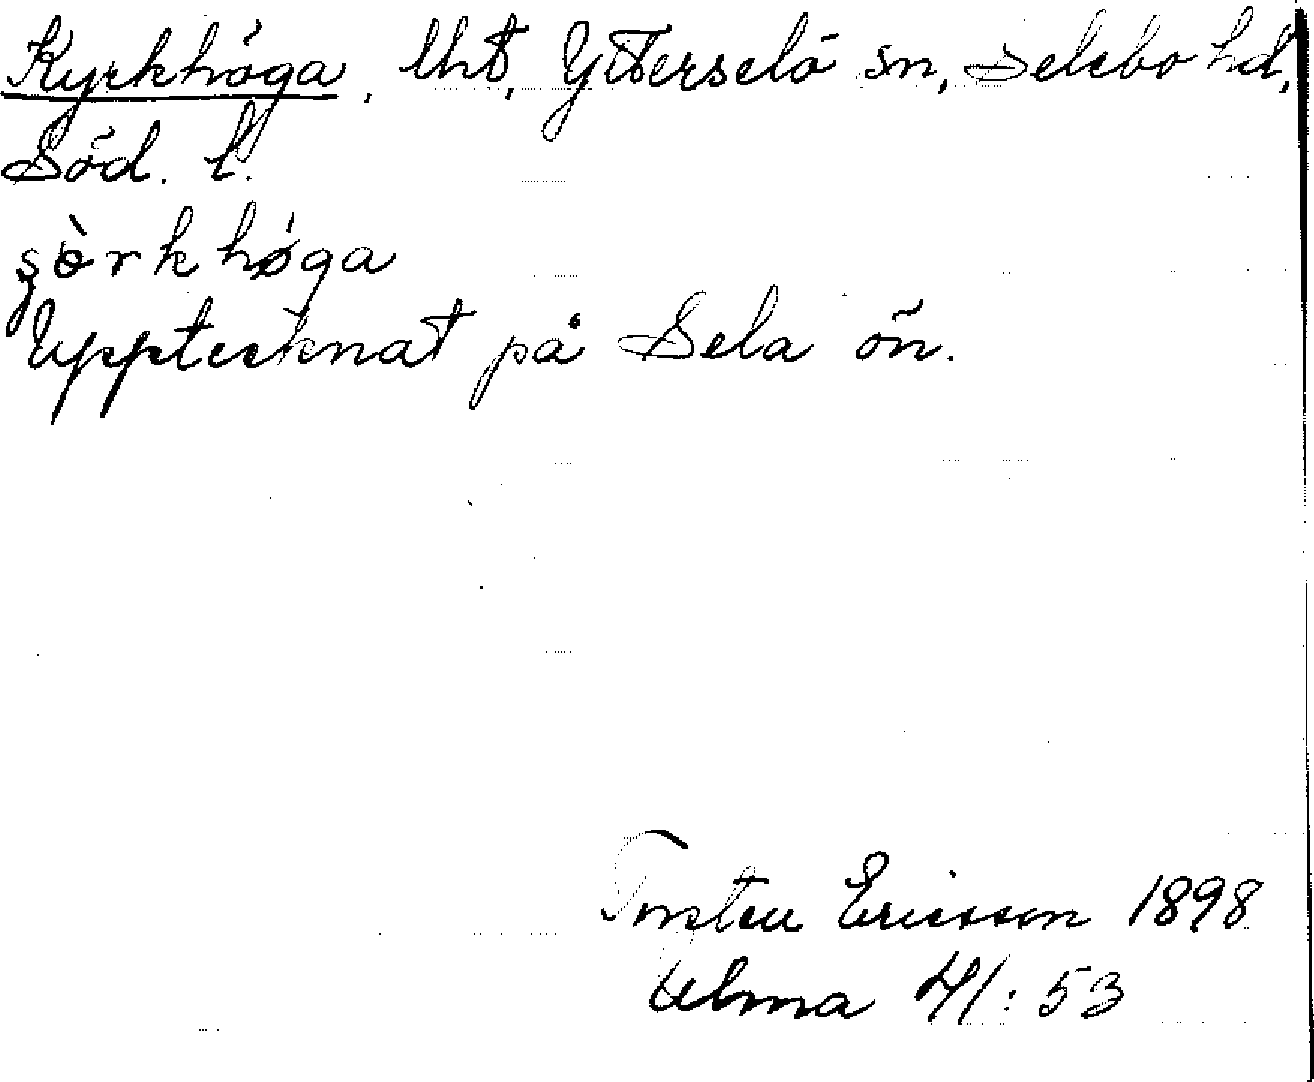 Kyrkhöga, lht, Ytterselö sn, Selebo hd,
Söd. l.
şèrkhø̀ga
Upptecknat på Sela ön.
Torsten Ericsson 1898
Ulma 41:53